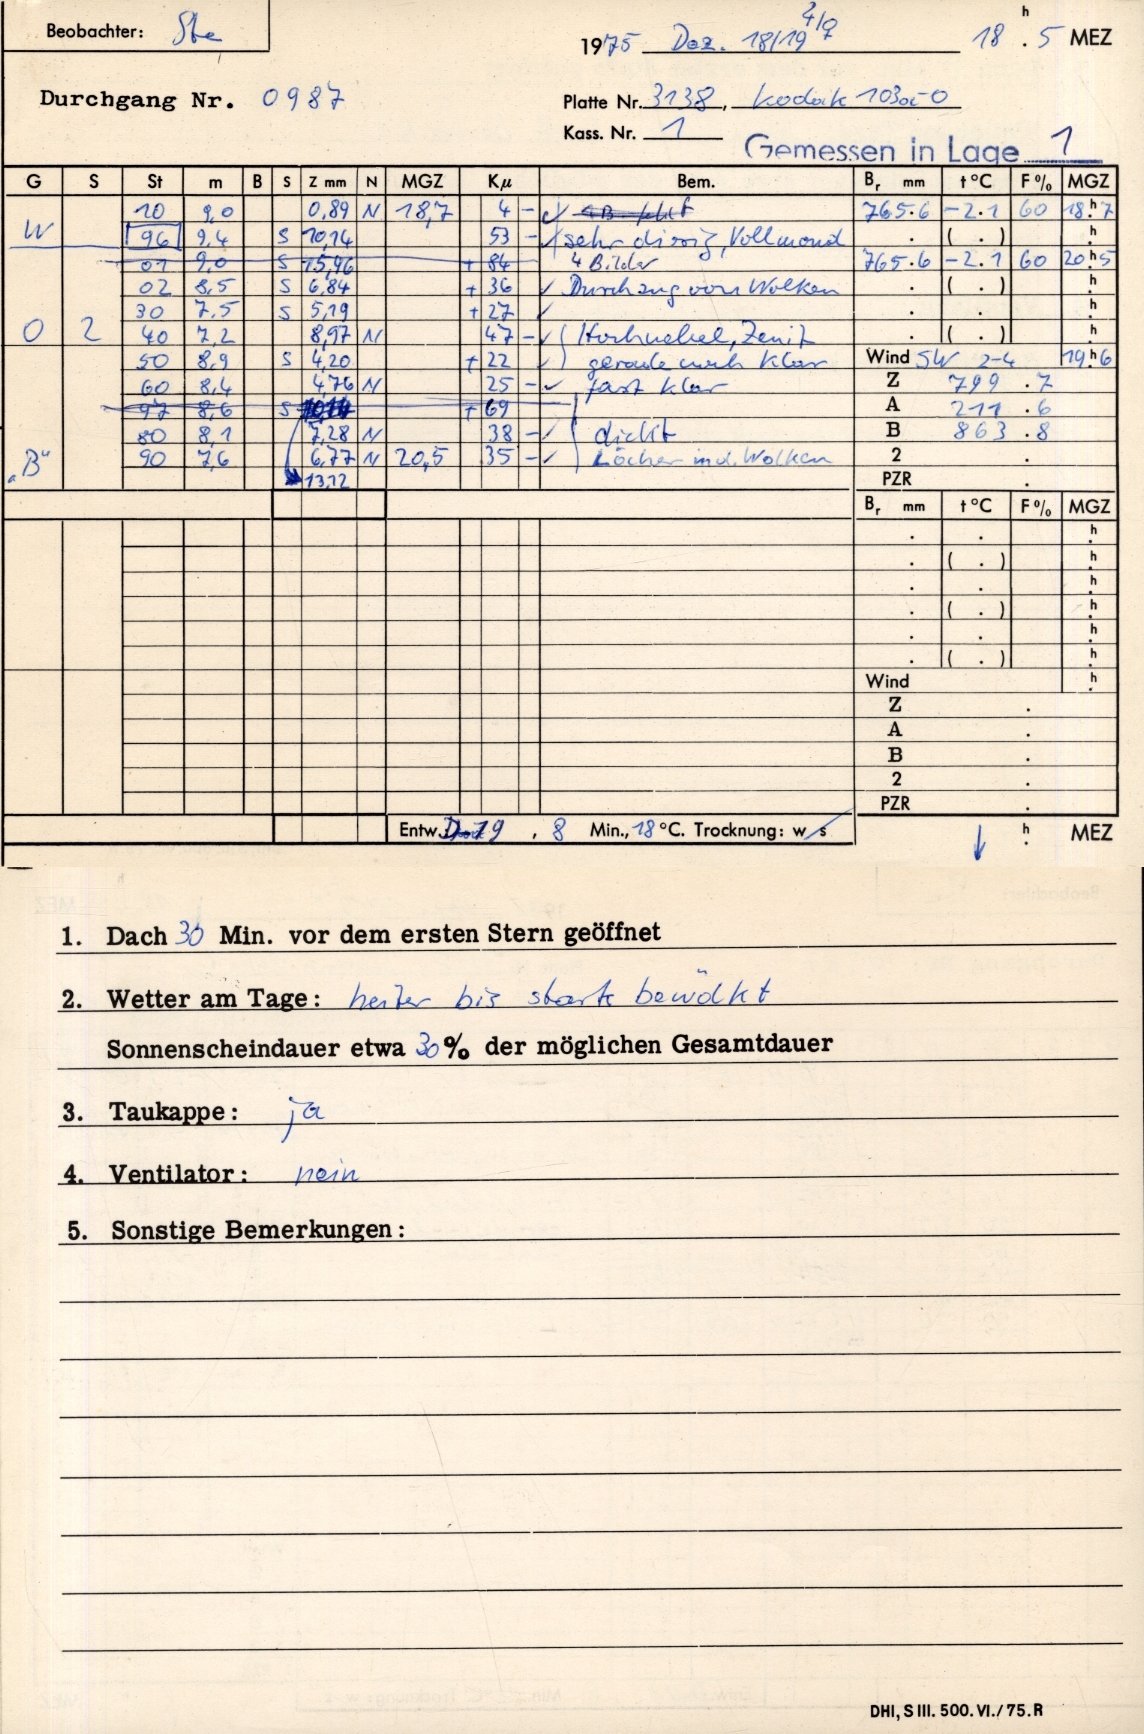 Beobachter: Ste
4/♀
1975 Dez. 18/19 18 h . 5 MEZ
Durchgang Nr. 0987
Platte Nr. 3138, Kodak 103a-0
Kass. Nr. 1
Gemessen in Lage 1
G S St m B S Z mm N MGZ Kμ Bem. Br mm t°C F% MGZ
10 9,0 0,89 N 18,7 4 - ✓ 765.6 -2.1 60 18.h7
W 96 9,4 S 10,14 53 - ✓ sehr diesig, Vollmond . ( . ) h
01 9,0 S 15,96 + 84 4 Bilder 765.6 -2.1 60 20.h5
02 8,5 S 6,84 + 36 ✓ Durchzug von Wolken . ( . ) h
30 7,5 S 5,19 + 27 ✓ . . h
O 2 40 7,2 8,97 N 47 - ✓ Hochnebel, Zenit . ( . ) h
50 8,9 S 4,20 + 22 ✓ gerade noch klar Wind SW 2-4 19.h6
60 8,4 4,76 N 25 - ✓ fast klar Z 799.7
97 8,6 S + 69 A 211.6
80 8,1 7,28 N 38 - ✓ dicht B 863.8
"B" 90 7,6 6,77 N 20,5 35 - ✓ Löcher in d. Wolken 2 .
13,12 PZR .
Br mm t°C F% MGZ
. . h
. ( . ) h
. . h
. ( . ) h
. . h
. ( . ) h
Wind h
Z .
A .
B .
2 .
PZR .
Entw. D-19, 8 Min., 18 °C. Trocknung: w/s h . MEZ
1. Dach 30 Min. vor dem ersten Stern geöffnet
2. Wetter am Tage: heiter bis stark bewölkt
Sonnenscheindauer etwa 30% der möglichen Gesamtdauer
3. Taukappe: ja
4. Ventilator: nein
5. Sonstige Bemerkungen:
DHI, S III. 500. VI./75. R